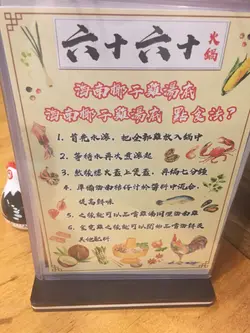 六十六十火鍋
海南椰子雞湯底
海南椰子雞湯底 點食法?
1. 首先水滾,把全部雞放入鍋中
2. 等待水再次煮滾起
3. 然後將火蓋上煲蓋,再焗七分鐘
4. 準備海南桔仔汁於醬料中混合,
提高鮮味
5. 之後就可以品嚐雞湯同埋海南雞
6. 食完雞之後就可以開始品嚐海鮮及
其他配料